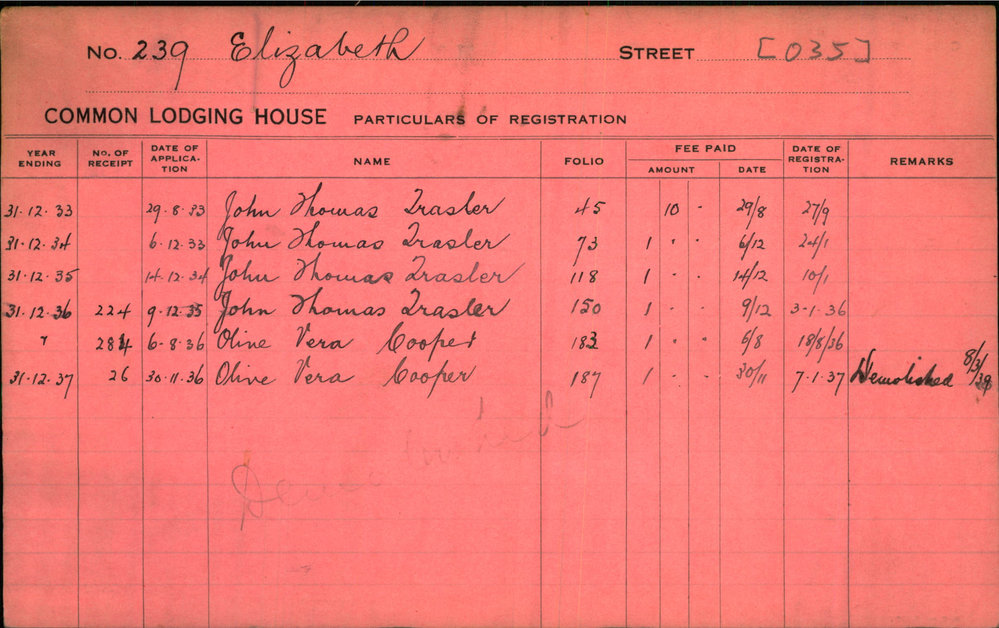 No. 239 Elizabeth STREET [035]
COMMON LODGING HOUSE PARTICULARS OF REGISTRATION
YEAR ENDING No. OF RECEIPT DATE OF APPLICA-TION NAME FOLIO FEE PAID AMOUNT DATE DATE OF REGISTRA-TION REMARKS
31.12.33 29.8.33 John Thomas Trasler 45 10 - 29/8 27/9
31.12.34 6.12.33 John Thomas Trasler 73 1 " " 6/12 24/1
31.12.35 14.12.34 John Thomas Trasler 118 1 " " 14/12 10/1
31.12.36 224 9.12.35 John Thomas Trasler 150 1 - - 9/12 3-1-36
" 284 6-8-36 Olive Vera Cooper 183 1 " " 6/8 18/8/36
31.12.37 26 30.11.36 Olive Vera Cooper 187 1 - - 30/11 7.1.37 Demolished 8/3/39
Demolished